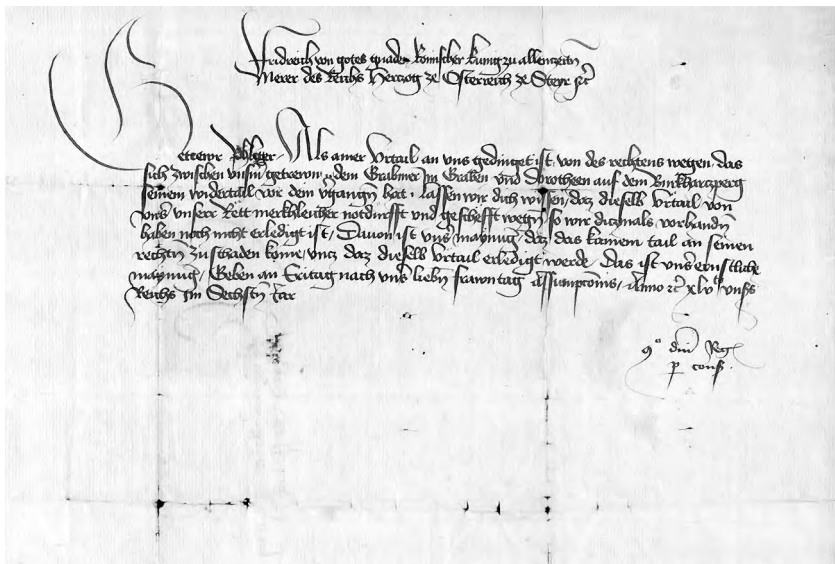 Fridreich von gotes gnaden Römischer Kunig zu allenczeitn
Merer des Reichs Herczog ze Osterreich ze Steyr etc
Getrewr Als ainer Vrtail an vns gedinget ist von des rechtens wegen das
sich zwischen vnsin getrewn dem Grabmer im Graben vnd Dorotheen auf dem Burkhartzperg
seinem widertail vor dem vergangn hat, lassen wir dich wissen, daz dieselb Vrtail von
vnser Rett merkhleicher notdurfft vnd gescheft wegn so wir diczmals vorhandn
haben noch nicht erledigt ist, Dauon ist vns maynung daz das kainem tail an seinen
rechtn zu schaden kome, vncz daz dieselb vrtail erledigt werde, das ist vns ernstliche
maynung, Geben an Eritag nach vns liebn frawntag Assumpcionis, Anno etc xlvto vnsers
Reichs im Sechstn Iar
Co dni Regis
p cons